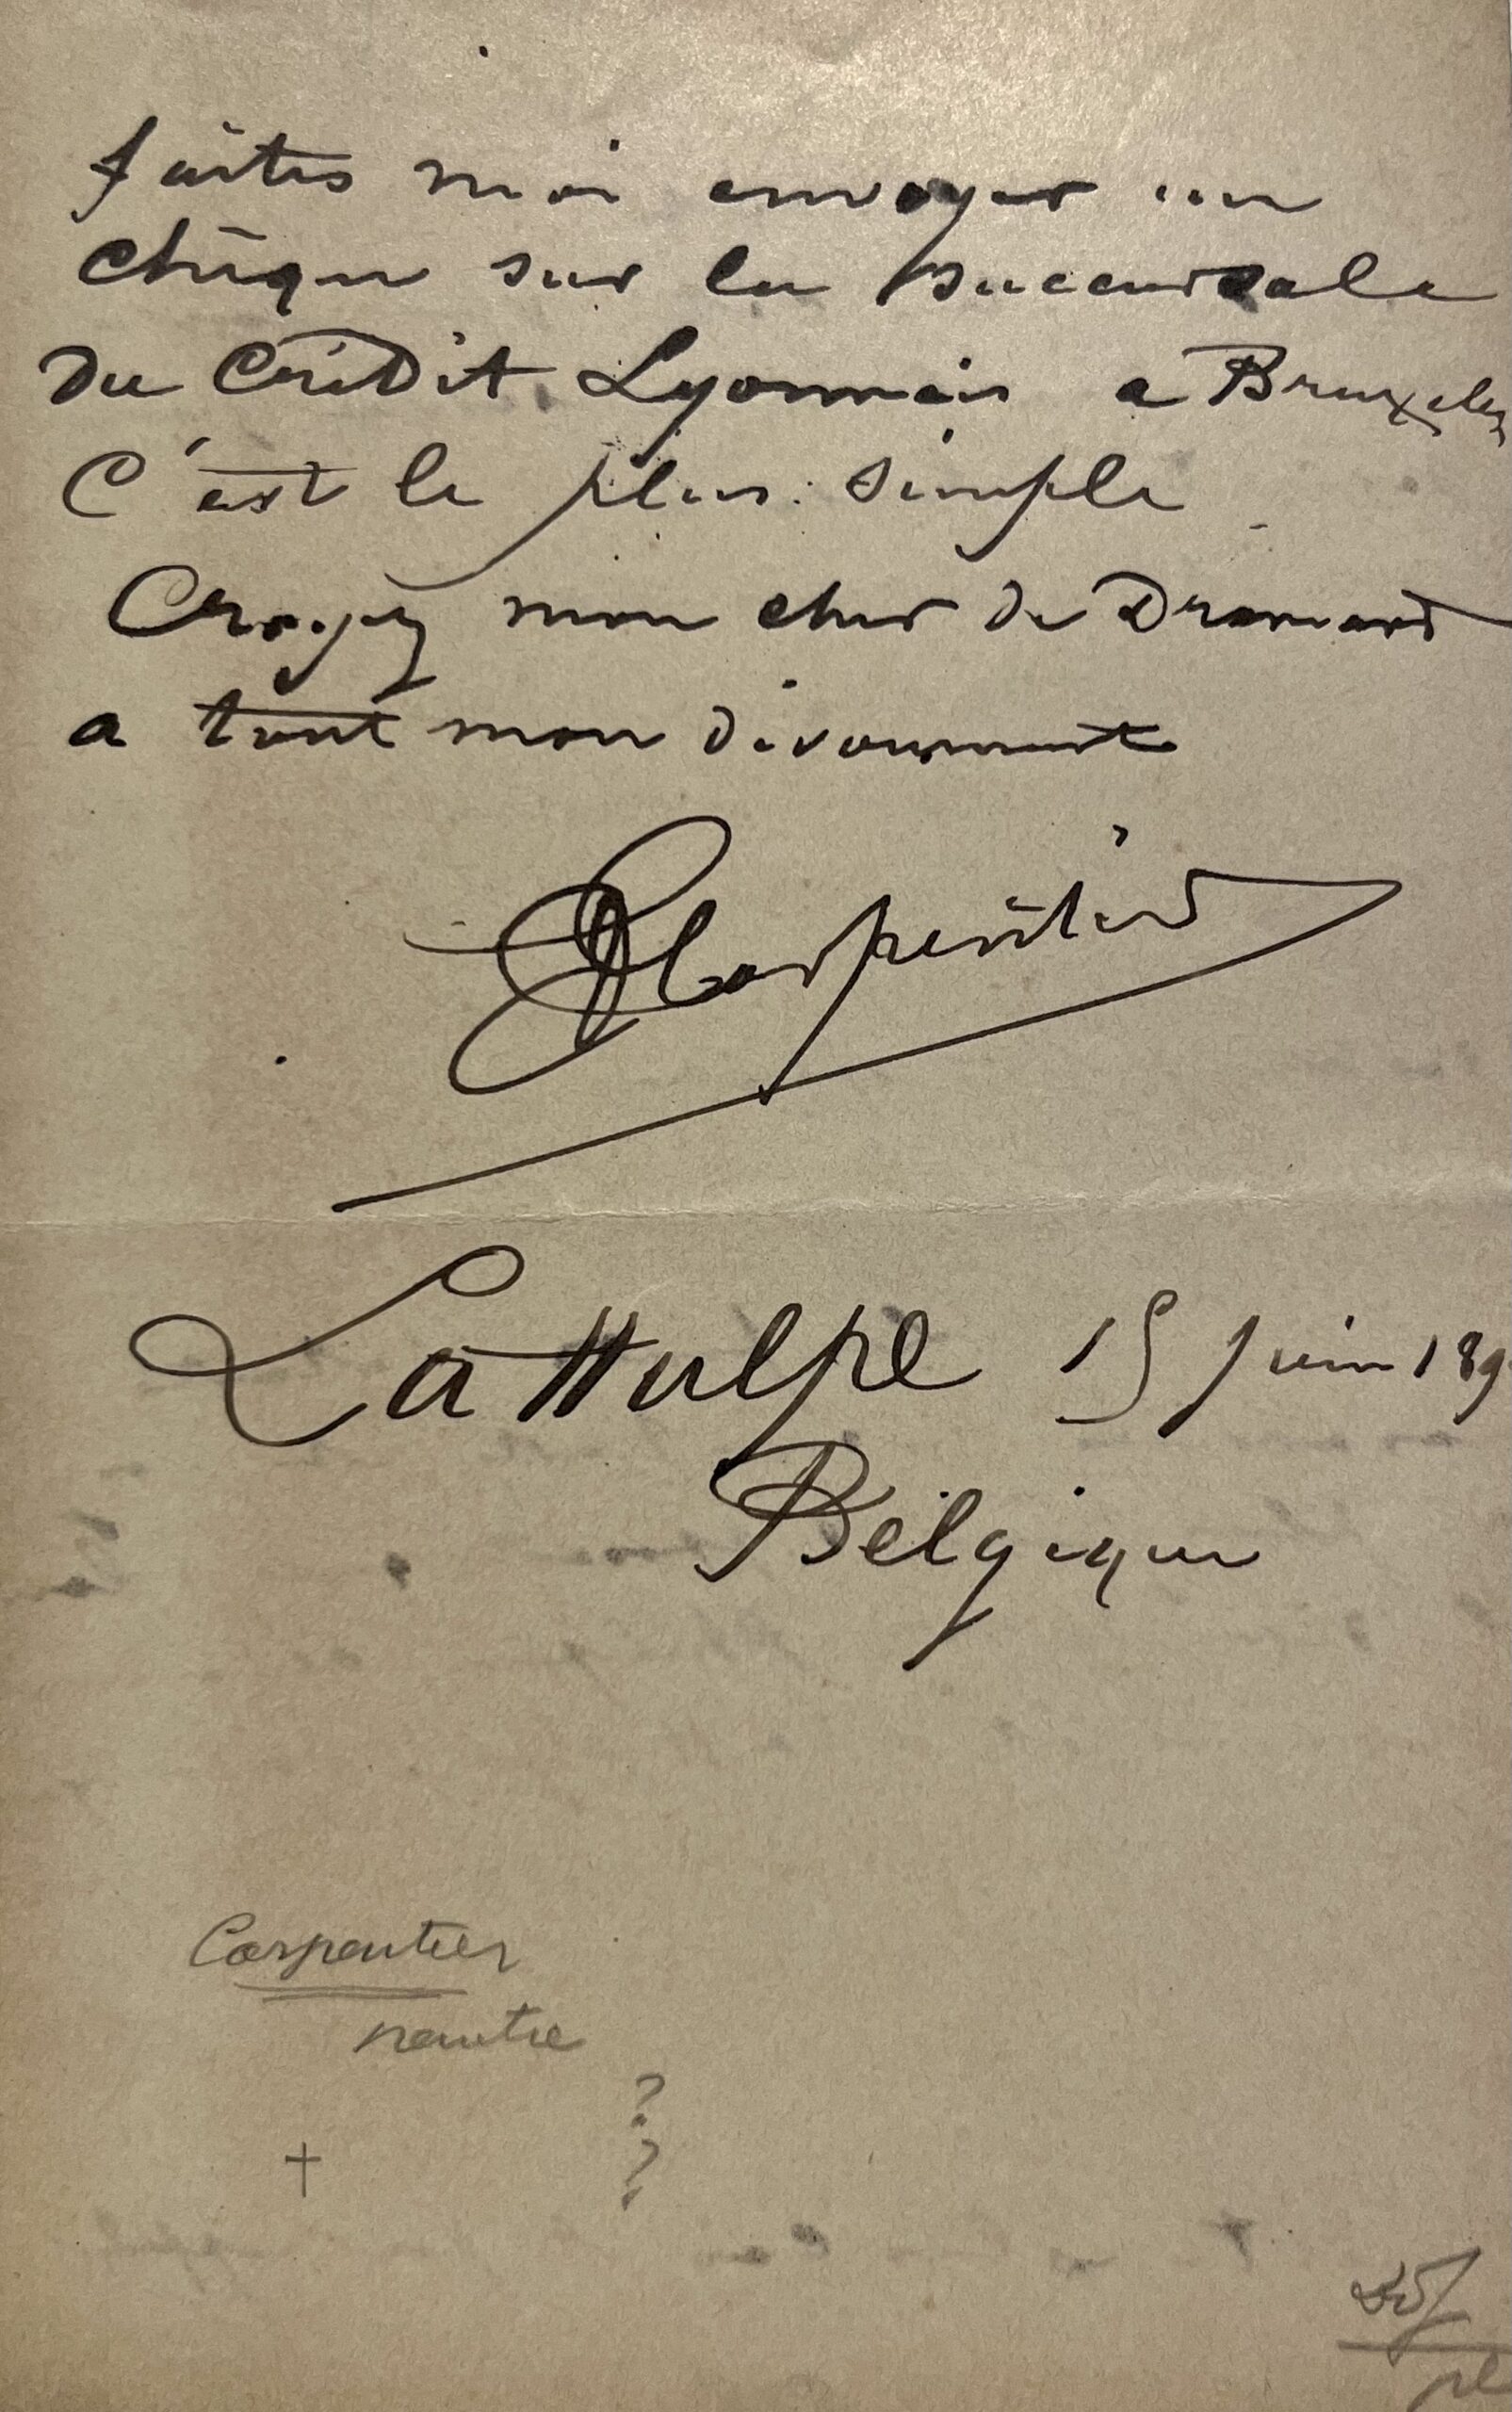 faites moi envoyer un
chèque sur la succursale
du Crédit Lyonnais a Bruxelles
C'est le plus simple
Croyez mon cher de Dramard
a tout mon dévouement
Carpentier
La Hulpe 15 juin 189
Belgique
Carpentier
peintre
?
?